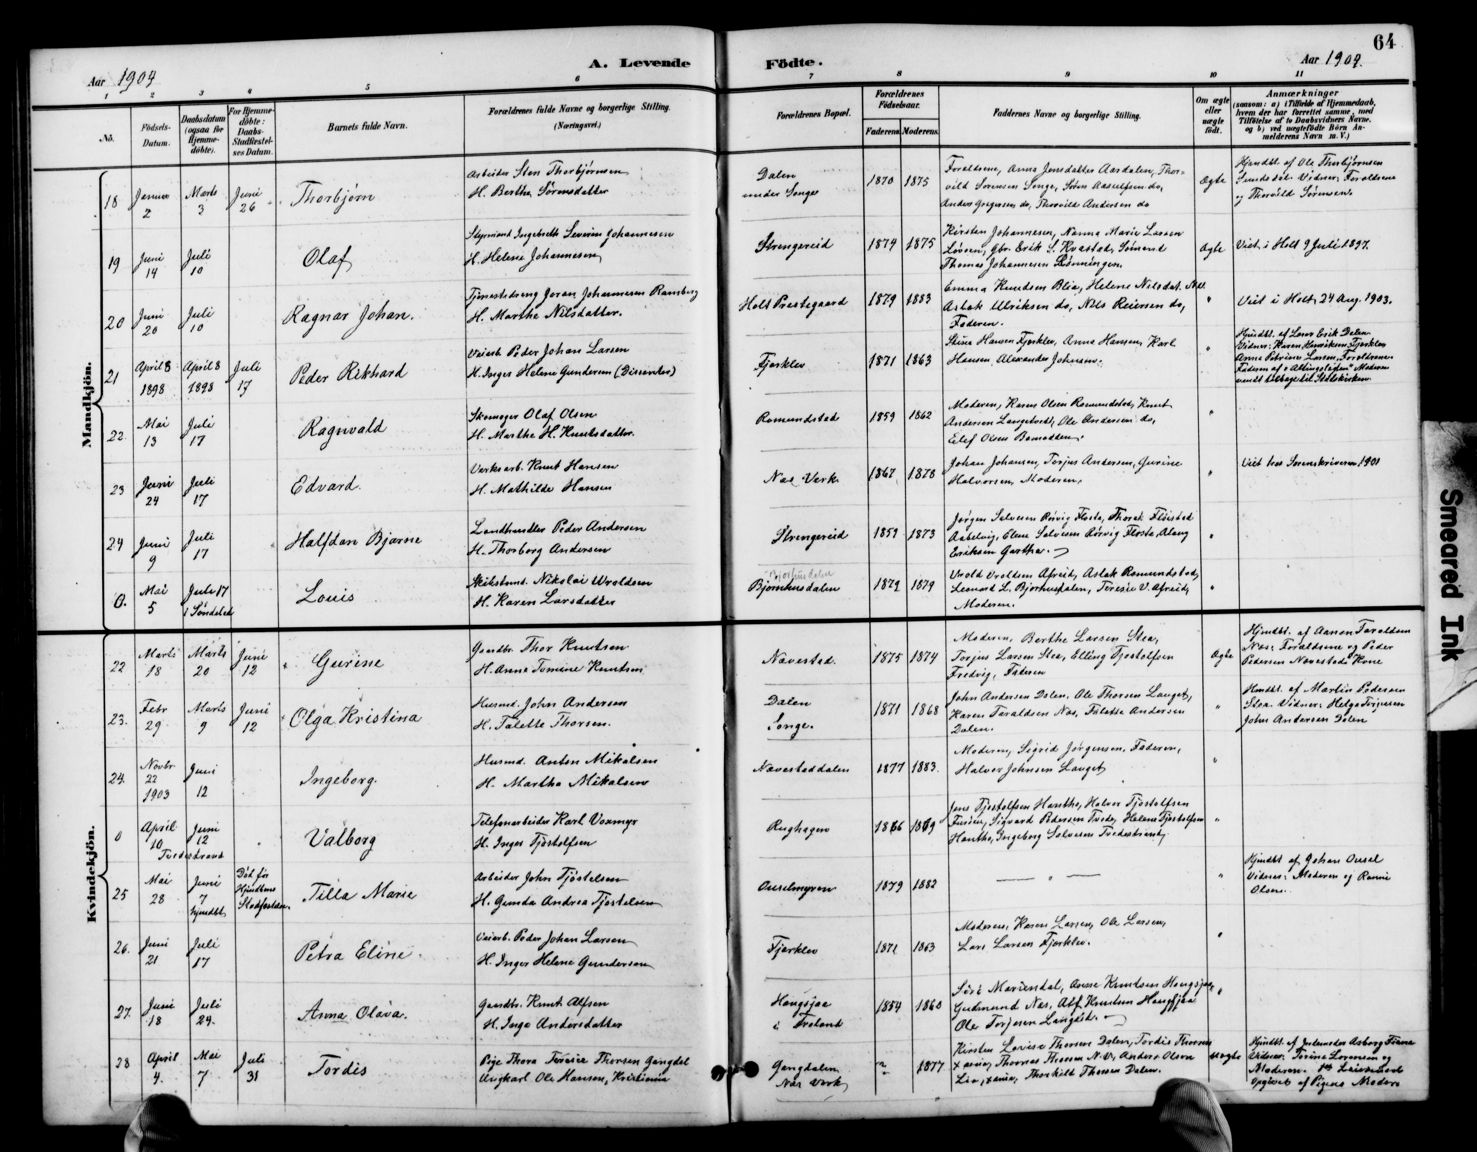 64
Aar 1904
A. Levende
Fødte.
Aar 1904.
1 2 3 4 5 6 7 8 9 10 11
No.
Fødsels-
Datum.
Daabsdatum
(ogsaa for
Hjemme-
døbte).
For Hjemme-
døbte:
Daabs-
Stadfæstel-
ses Datum.
Barnets fulde Navn.
Forældrenes fulde Navne og borgerlige Stilling.
(Næringsvei.)
Forældrenes Bopæl.
Forældrenes
Fødselsaar.
Faderens. Moderens.
Faddernes Navne og borgerlige Stilling.
Om ægte
eller
uægte
født.
Anmærkninger
(saasom: a) i Tilfælde af Hjemmedaab,
hvem der har forrettet samme, med
Tilføielse af to Daabsvidners Navne,
og b) ved uægtefødte Børn An-
melderens Navn m. V.)
Mandkjön.
18
Januar
2
Marts
3
Juni
26
Thorbjørn
Arbeider Sten Thorbjørnsen
H. Berthe Sörensdatter
Dalen
under Songe
1870 1875
Forældrene, Anna Jensdatter Aasdalen, Thor-
vild Sørensen Songe, Søren Aasulfsen do,
Anders Gregersen do, Thorvild Andersen do
Ægte
Hjmdbt. af Ole Thorbjørnsen
Sundsdal. Vidner: Forældrene
og Thorvild Sørensen.
19
Juni
14
Juli
10
Olaf
Styrmand Ingebredt Severin Johannesen
H. Helene Johannesen
Strengereid
1874 1875
Kirsten Johannesen, Nanna Marie Larsen
Løvsen, Gbr. Erik S. Kvastad, Sømand
Thomas Johannesen Rønningen.
Ægte
Viet i Holt 9 Juli 1897.
20
Juni
20
Juli
10
Ragnar Johan.
Tjenestedreng Joran Johannesen Ramberg
H. Marthe Nilsdatter.
Holt Prestegaard
1879 1883
Emma Knudsen Blia, Helene Nilsdat. Næs
Aslak Ulriksen do, Nils Reiersen do,
Faderen.
"
Viet i Holt, 24 Aug. 1903.
21
April 8
1898
April 8
1898
Juli
17
Peder Rikhard
Veiarb. Peder Johan Larsen
H. Inger Helene Gundersen (Dissenter)
Fjerklev
1871 1863
Stine Hansen Fjerklev, Anna Hansen, Karl
Hansen, Alexander Johnsen.
"
Hmdbt. af Lærer Erik Dalen
Vidner: Karen Henriksen Fjerklev
Anne Petrine Larsen, Forældrene.
Faderen af Moderen
vendt tilbage til Statskirken
22.
Mai
13
Juli
17
Ragnvald
Skomager Olaf Olsen
H. Marthe H. Knutsdatter.
Romundstad
1859 1862
Moderen, Karen Olsen Romundstad, Knut
Andersen Langelund, Ole Andersen do,
Eilef Olsen
"
23
Juni
24
Juli
17
Edvard.
Verksarb. Knut Hansen
H. Mathilde Hansen
Næs Verk.
1867 1878
Johan Johansen, Terjus Andersen, Gurine
Halvorsen, Moderen.
"
Viet hos Sorenskriveren 1901
24
Juni
9
Juli
17
Halfdan Bjarne
Landhandler Peder Andersen
H. Thorborg Andersen
Strengereid
1859 1873
Jørgen Salvesen Rørvig Flosta, Thorst. Fløistad
Askelvig, Elene Salvesen Rörvig Flosta, Aslaug
Eriksen Garthe.
"
0.
Mai
5
Juli 17
i Søndeled
Louis
Skibstmd. Nikolai Wroldsen
H. Karen Larsdatter
Bjorhusdalen
Bjornhusdalen
1872 1879
Wrold Wroldsen Afreid, Aslak Romundstad,
Leonard L. Bjorhusdalen, Teresie V. Afreid,
Moderen.
"
Kvindekjön.
22
Marts
18
Marts
20
Juni
12
Gurine
Gaardbr. Thor Knutsen
H. Anna Tomine Knutsen
Navestad.
1875 1874
Moderen, Berthe Larsen Stea,
Torjus Larsen Stea, Elling Tjostolfsen
Fredvig, Faderen
Ægte
Hjmdbt. af Aanon Taraldsen
Næs. Forældrene og Peder
Pedersen Navestads Kone
23.
Febr
29
Marts
9
Juni
12
Olga Kristina
Husmd. John Andersen
H. Talette Thorsen.
Dalen
Songe.
1871 1868
John Andersen Dalen, Ole Thorsen Lauget,
Karen Taraldsen Næs, Talette Andersen
Dalen.
"
Hmdbt. af Martin Pedersen
Stea. Vidner: Helga Torjusen
John Andersen Dalen
24.
Novbr
22
1903
Juni
12
Ingeborg.
Husmd. Anton Mikalsen
H. Martha Mikalsen
Navestaddalen
1877 1883.
Moderen, Sigrid Jørgensen, Faderen,
Halvor Johnsen Lauget
"
0
April
10
Juni
12
Tvedestrand
Valborg
Telefonarbeider Karl Voxmyr
H. Inger Tjøstolfsen
Rughagen
1866 1869
Jens Tjøstolfsen Hanthe, Halvor Tjostolfsen
Furøen, Sigvard Pedersen Tvede, Helene Tjøstolfsen
Hanthe, Ingeborg Salvesen Tvedestrand
"
25
Mai
28
Juni
7
hjmdbt
Død før
Hjmdbns
Stadfæstelsen.
Tilla Marie
Arbeider John Tjøstelsen
H. Gunda Andrea Tjøstelsen
Ouselmyren
1879 1882
— " —
"
Hjmdbt af Johan Ousel
Vidner: Moderen og Ranni
Olsen.
26.
Juni
21
Juli
17
Petra Eline.
Veiarb. Peder Johan Larsen
H. Inger Helene Gundersen
Fjerklev
1871 1863
Moderen, Karen Larsen, Ole Larsen,
Lars Larsen Fjerklev.
"
27.
Juni
18
Juli
24.
Anna Olava.
Gaardbr. Knut Alfsen
H. Inge Andersdatter
Hougsjaa
i Froland
1854 1860
Siri Mariendal, Anne Knudsen Hougsjaa,
Gudmund Næs, Alf Knutsen Hougsjaa
Ole Torjusen Langlid.
"
28
April
4.
Mai
7
Juli
31
Tordis
Pige Thora Torsine Thorsen Gangdal
Ungkarl Ole Hansen, Kristiania
Gangdalen
Næs Verk
?
1877
Kirsten Lovise Thorsen Dalen, Tordis Thorsen
Thomas Thorsen N. V., Anders Olsen
Lia, Thorkild Thorsen Dalen.
Uægte
Hjmdbt. af Jordemoder Aasberg
Vidner: Torine Sørensen og
Moderen.
Opgivet af Pigens Moder
Smeared Ink